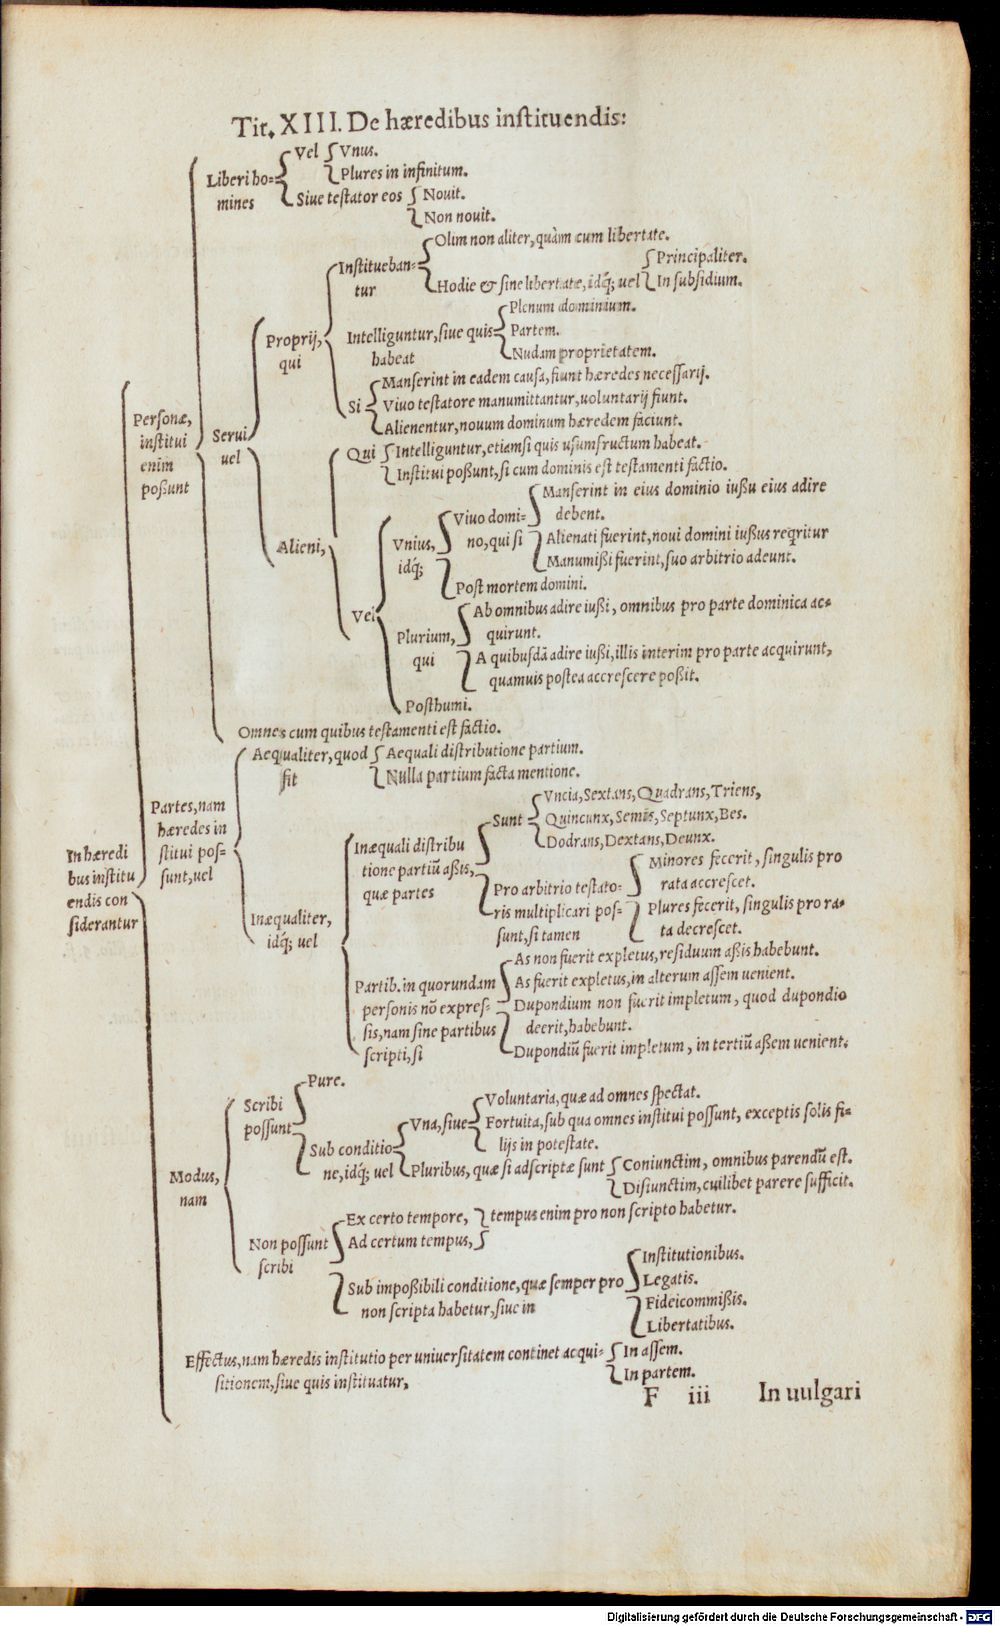 Tit. XIII. De hæredibus instituendis:
Vel Vnus.
Plures in infinitum.
Liberi ho-
mines
Siue testator eos Nouit.
Non nouit.
Olim non aliter, quàm cum libertate.
Institueban-
tur
Principaliter.
Hodie & sine libertate, idq́; uel In subsidium.
Plenum dominium.
Proprij,
qui
Intelliguntur, siue quis
habeat
Partem.
Nudam proprietatem.
Manserint in eadem causa, fiunt hæredes necessarij.
Si Viuo testatore manumittantur, uoluntarij fiunt.
Alienentur, nouum dominum hæredem faciunt.
Personæ,
institui
enim
possunt
Serui
uel
Qui Intelliguntur, etiamsi quis usumfructum habeat.
Institui possunt, si cum dominis est testamenti factio.
Manserint in eius dominio iussu eius adire
debent.
Viuo domi-
no, qui si
Alieni,
Vnius,
idq́;
Alienati fuerint, noui domini iussus reqritur
Manumissi fuerint, suo arbitrio adeunt.
Post mortem domini.
Vel
Ab omnibus adire iussi, omnibus pro parte dominica ac-
quirunt.
Plurium,
qui
A quibusdā adire iussi, illis interim pro parte acquirunt,
quamuis postea accrescere possit.
Posthumi.
Omnes cum quibus testamenti est factio.
Aequaliter, quod
fit
Aequali distributione partium.
Nulla partium facta mentione.
Partes, nam
hæredes in
stitui pos-
sunt, uel
Vncia, Sextans, Quadrans, Triens,
Sunt Quincunx, Semis, Septunx, Bes.
Dodrans, Dextans, Deunx.
Inæquali distribu
tione partiū assis,
quæ partes
Minores fecerit, singulis pro
rata accrescet.
Pro arbitrio testato-
ris multiplicari pos-
sunt, si tamen
Plures fecerit, singulis pro ra-
ta decrescet.
In hæredi
bus institu
endis con
siderantur
Inæqualiter,
idq́; uel
As non fuerit expletus, residuum assis habebunt.
Partib. in quorundam
personis nō expres-
sis, nam sine partibus
scripti, si
As fuerit expletus, in alterum assem uenient.
Dupondium non fuerit impletum, quod dupondio
deerit, habebunt.
Dupondiū fuerit impletum, in tertiū assem uenient.
Pure.
Scribi
possunt
Voluntaria, quæ ad omnes spectat.
Vna, siue Fortuita, sub qua omnes institui possunt, exceptis solis fi-
lijs in potestate.
Sub conditio-
ne, idq́; uel
Pluribus, quæ si adscriptæ sunt Coniunctim, omnibus parendū est.
Disiunctim, cuilibet parere sufficit.
Modus,
nam
Ex certo tempore, tempus enim pro non scripto habetur.
Non possunt
scribi
Ad certum tempus,
Institutionibus.
Sub impossibili conditione, quæ semper pro
non scripta habetur, siue in
Legatis.
Fideicommissis.
Libertatibus.
Effectus, nam hæredis institutio per uniuersitatem continet acqui-
sitionem, siue quis instituatur,
In assem.
In partem.
F iii In uulgari
Digitalisierung gefördert durch die Deutsche Forschungsgemeinschaft - DFG